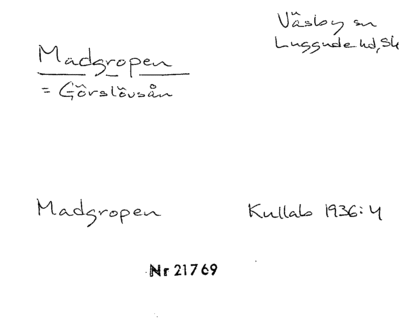 Väsby sn
Luggude hd, Sk
Madgropen
= Görslövsån
Madgropen
Kullab 1936:4
Nr 21769